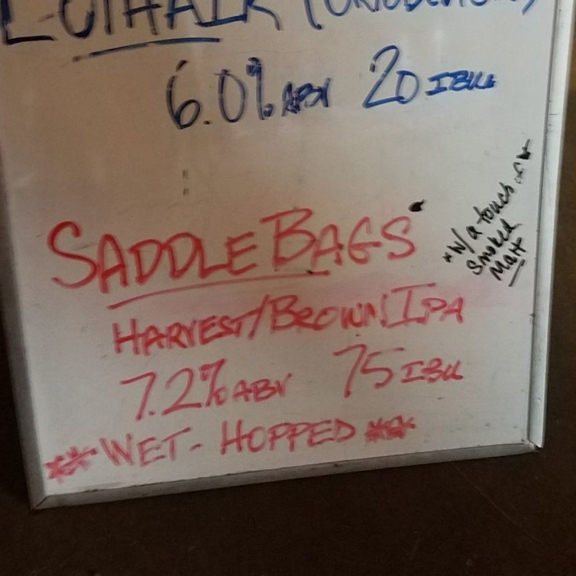 6.0% ABV 20 IBU
SADDLE BAGS
HARVEST/BROWN IPA
7.2% ABV 75 IBU
**WET-HOPPED**
*W/a touch of
Smoked
Malt